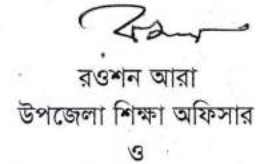 রওশন আরা
উপজেলা শিক্ষা অফিসার
ও